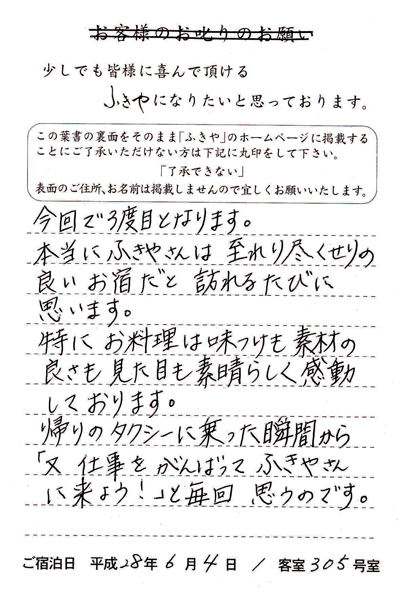 お客様のお叱りのお願い
少しでも皆様に喜んで頂ける
ふきやになりたいと思っております。
この葉書の裏面をそのまま「ふきや」のホームページに掲載する
ことにご了承いただけない方は下記に丸印をして下さい。
「了承できない」
表面のご住所、お名前は掲載しませんので宜しくお願いいたします。
今回で3度目となります。
本当にふきやさんは 至れり尽くせりの
良い お宿だと 訪れるたびに
思います。
特に お料理は味つけも素材の
良さも 見た目も素晴らしく 感動
しております。
帰りのタクシーに乗った瞬間から
「又 仕事を がんばって ふきやさん
に来よう!」と毎回 思うのです。
ご宿泊日 平成28年 6月 4日 / 客室 305号室